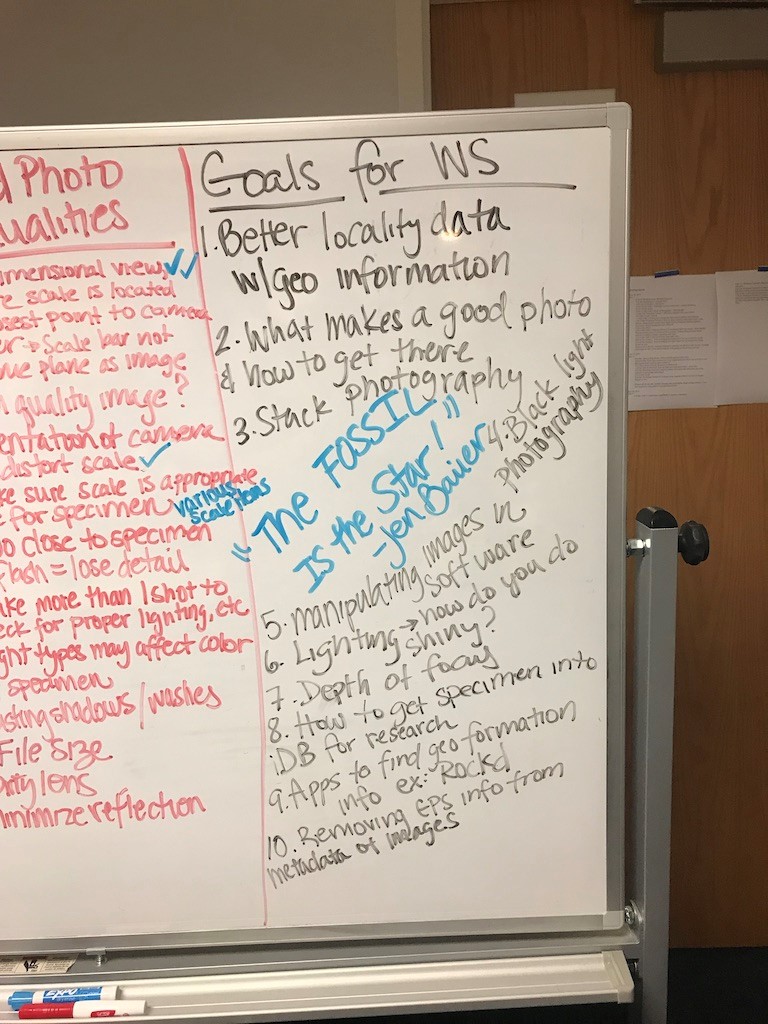 d Photo
ualities
imensional views
re scale is located
osest point to camera
er → Scale bar not
me plane as image
quality image?
entation of camera
distort scale
ke sure scale is appropriate
e for specimen
various
scale items
oo close to specimen
flash = lose detail
ake more than 1 shot to
eck for proper lighting, etc
ght types may affect color
specimen
asting shadows / washes
File Size
Dirty lens
minimize reflection
Goals for WS
1. Better locality data
w/geo information
2. What makes a good photo
& how to get there
3. Stack photography
4. Black light
photography
"The FOSSIL
Is the Star!"
-Jen Bauer
5. manipulating images in
software
6. Lighting → how do you do
shiny?
7. Depth of focus
8. How to get specimen into
iDB for research
9. Apps to find geo formation
info ex: Rockd
10. Removing EPS info from
metadata of images